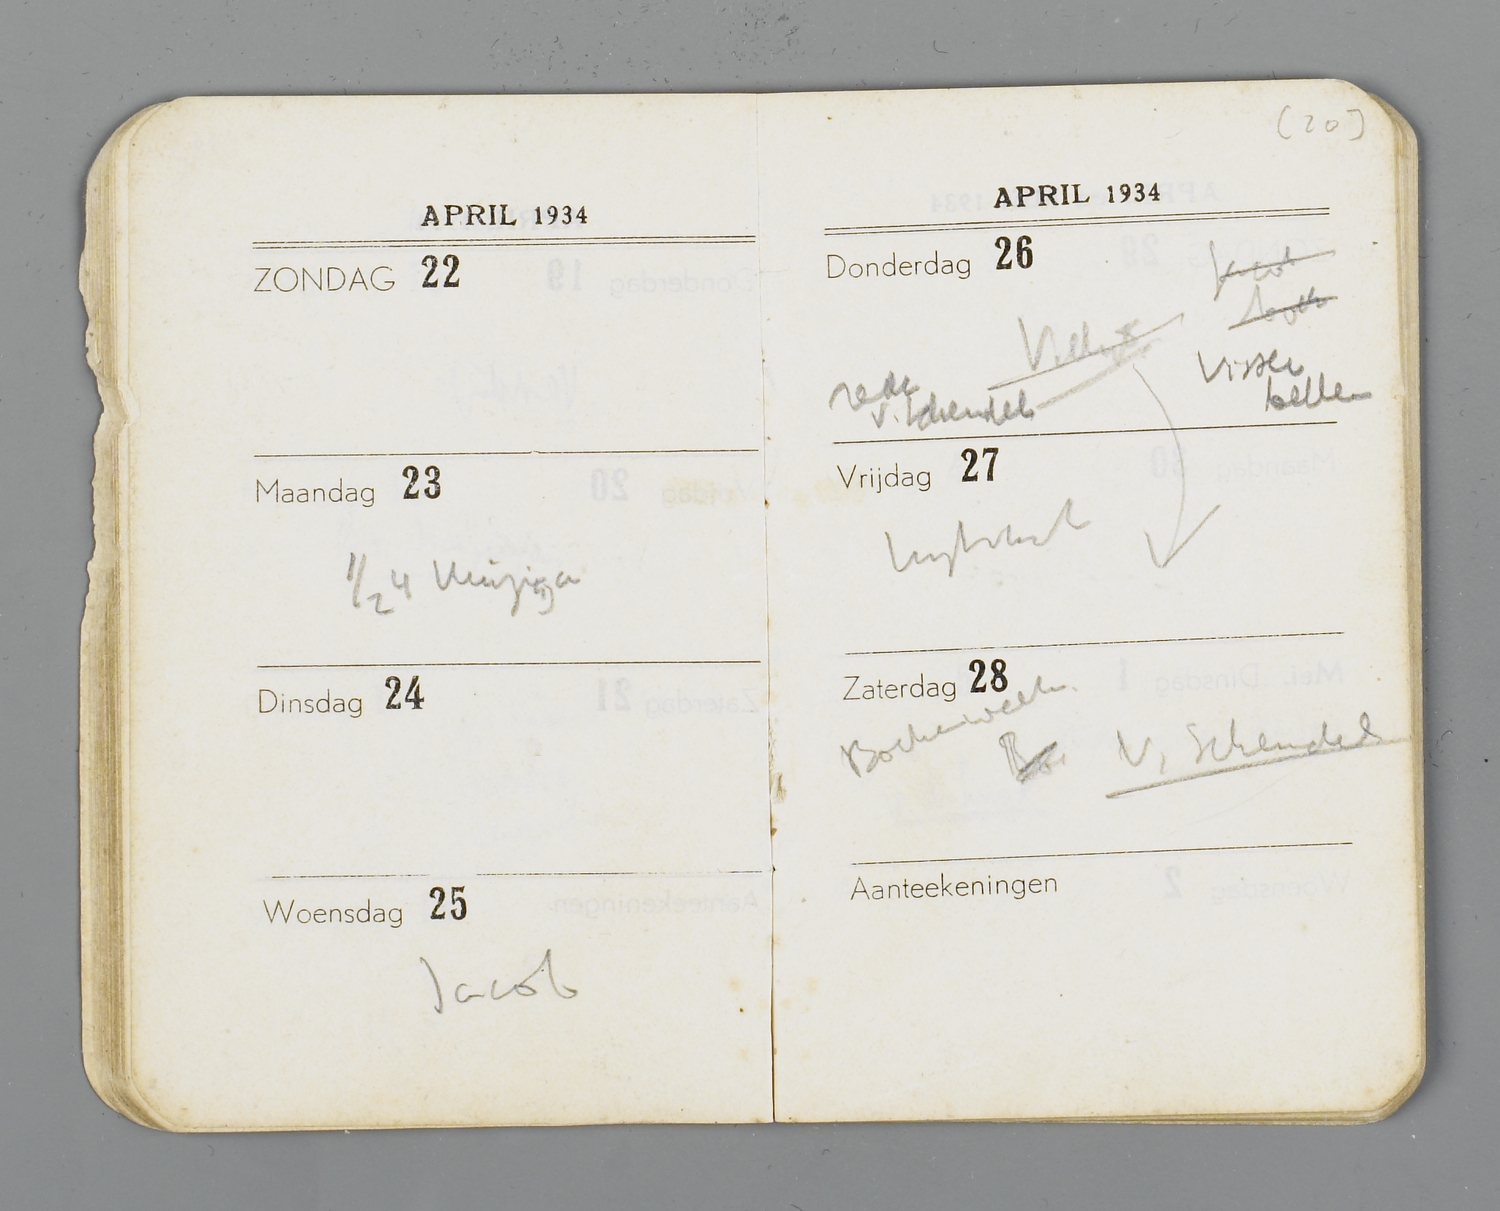 APRIL 1934
ZONDAG 22
Maandag 23
1/2 4
Dinsdag 24
Woensdag 25
Jacob
(20)
APRIL 1934
Donderdag 26
Visser
bellen
rede
v. Schendel
Vrijdag 27
Zaterdag 28
Boekenweek
V. Schendel
Aanteekeningen